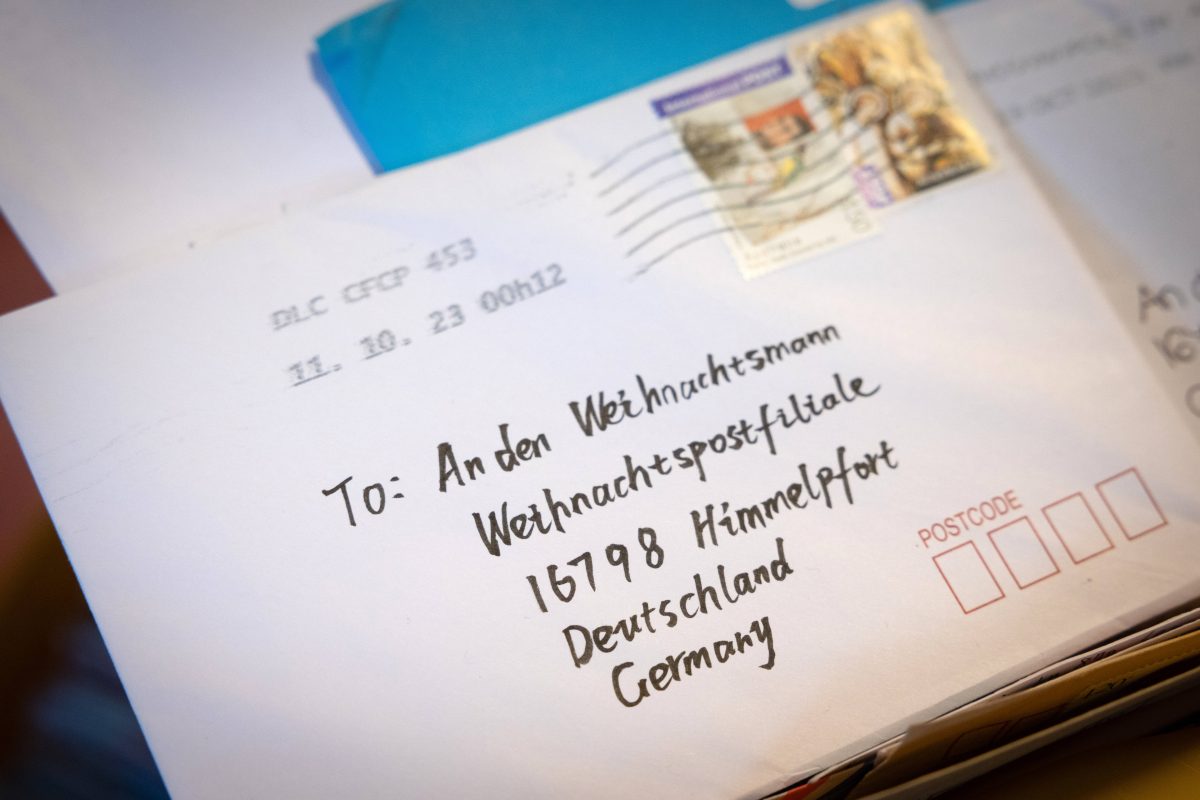 DLC CFCP 453
11. 10. 23 00h12
To: An den Weihnachtsmann
Weihnachtspostfiliale
16798 Himmelpfort
Deutschland
Germany
POSTCODE